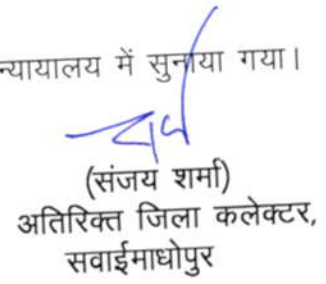 न्यायालय में सुनाया गया।
(संजय शर्मा)
अतिरिक्त जिला कलेक्टर,
सवाईमाधोपुर